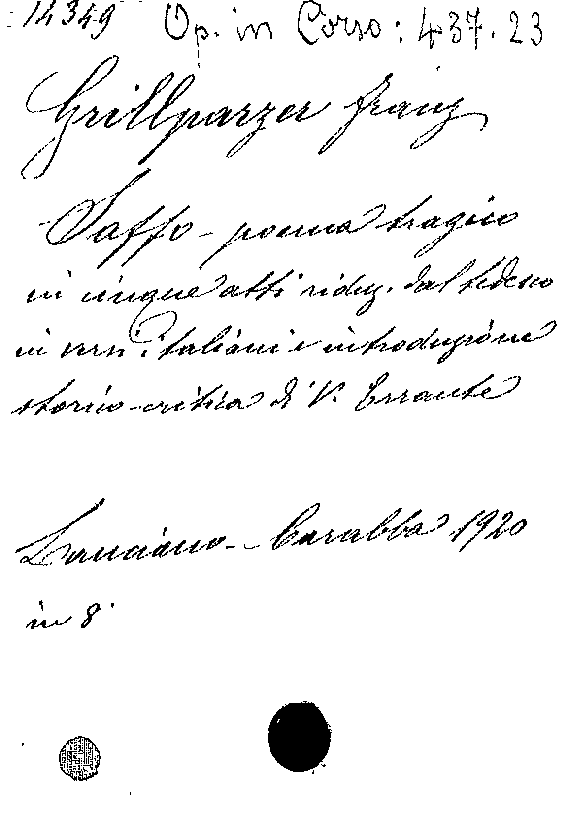 14349 Op. in Corso: 437.23
Grillparzer Franz
Saffo - poema tragico
in cinque atti riduz. dal tedesco
in versi italiani e introduzione
storico-critica di V. Errante
Lanciano - Carabba 1920
in 8°